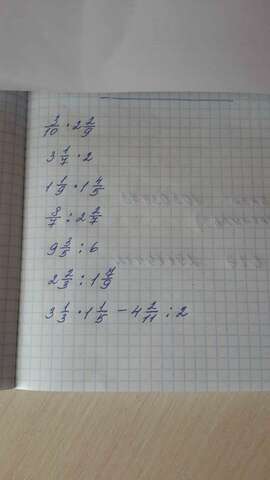 3/10 · 2 2/9
3 1/7 · 2
1 1/9 · 1 4/5
8/7 : 2 2/7
9 3/5 : 6
2 2/3 : 1 7/9
3 1/3 · 1 1/5 − 4 2/11 : 2